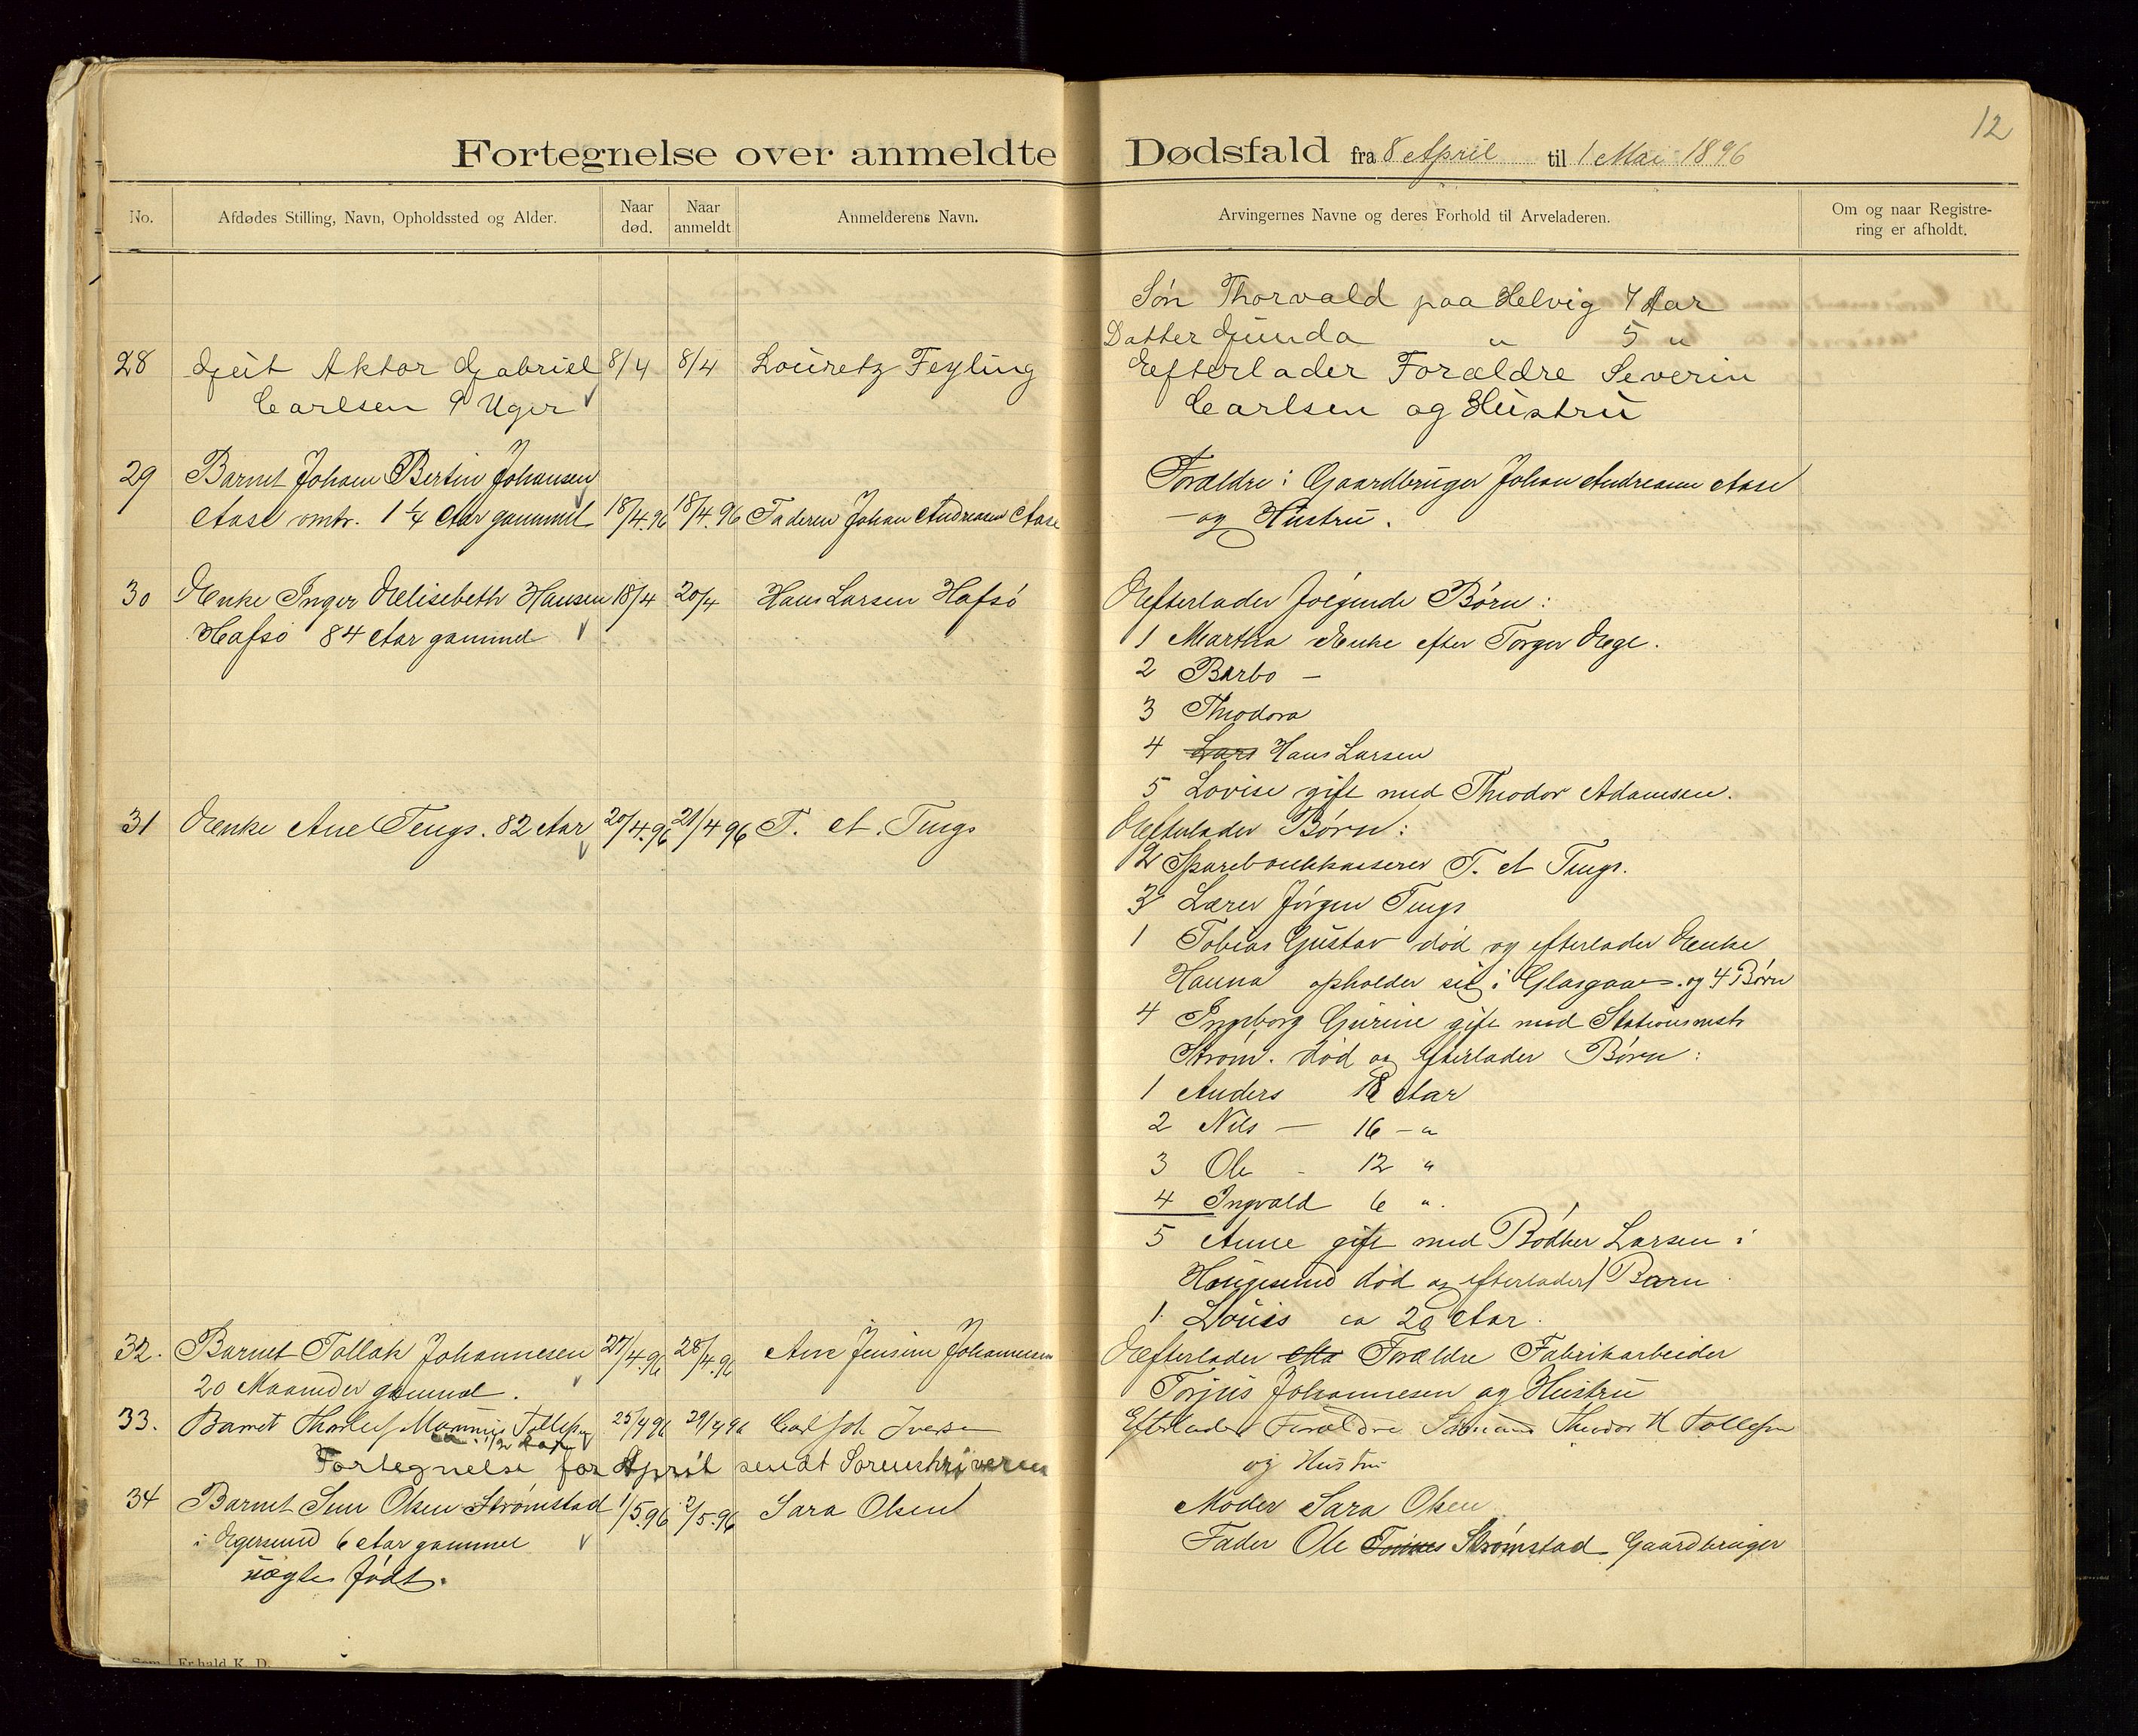 12
Fortegnelse over anmeldte Dødsfald fra 8 April til 1 Mai 1896
No.
Afdødes Stilling, Navn, Opholdssted og Alder.
Naar død.
Naar anmeldt
Anmelderens Navn.
Arvingernes Navne og deres Forhold til Arveladeren.
Om og naar Registre-
ring er afholdt.
Søn Thorvald paa Helvig 7 Aar
Datter Gunda " 5 "
28 Gjut Aktor Gabriel 8/4 8/4 Louretz Feyling Efterlader Forældre Severin
Carlsen 9 Uger Carlsen og Hustru
29 Barnet Johan Bertin Johansen Forældre: Gaardbruger Johan Andreasen Aase
Aase omtr. 1 1/4 Aar gammel 18/4.96 18/4.96 Faderen Johan Andreasen Aase — og Hustru.
30 Enke Inger Elisebeth Hansen 18/4 20/4 Hans Larsen Hafsö Efterlader følgende Børn:
Hafsö 84 Aar gammel 1 Martha Enke efter Torger Ege.
2 Barbo —
3 Theodora
4 Lars Hans Larsen
5 Lovise gift med Theodor Adamsen.
31 Enke Ane Tengs. 82 Aar 20/4.96 21/4 96 T. A. Tengs Efterlader Børn:
2 Sparebankkasserer T. A Tengs.
3 Lærer Jørgen Tengs
1 Tobias Gustav død og efterlader Enke
Hanna opholder sig i Glasgow. og 4 Børn
4 Ingeborg Gurine gift med Stationsmstr
Strøm. død og efterlader Børn:
1 Anders 18 Aar
2 Nils — 16 — "
3 Ole - 12 "
4 Ingvald 6 ".
5 Anne gift med Bødker Larsen i
Haugesund død og efterlader 1 Barn
1. Louis ca 20 Aar.
32. Barnet Tollak Johannesen 27/4.96 28/4.96 Ane Jensine Johannesen Efterlader Forældre Fabrikarbeider
20 Maaneder gammel. Torjus Johannesen og Hustru
33. Barnet Tollefsen 25/4 96 29/4 96 Carl Joh Iversen Efterlader Forældre Sømand Theodor H Tollefsen
ca. 1/2 Aar og Hustru
Fortegnelse for April sendt Sorenskriveren
34 Barnet Olsen Strømstad 1/5.96 2/5.96 Sara Olsen Moder Sara Olsen
i Egersund 6 Aar gammel Fader Ole Strømstad Gaardbruger
uægte født.
Sem Fr.hald K. D.